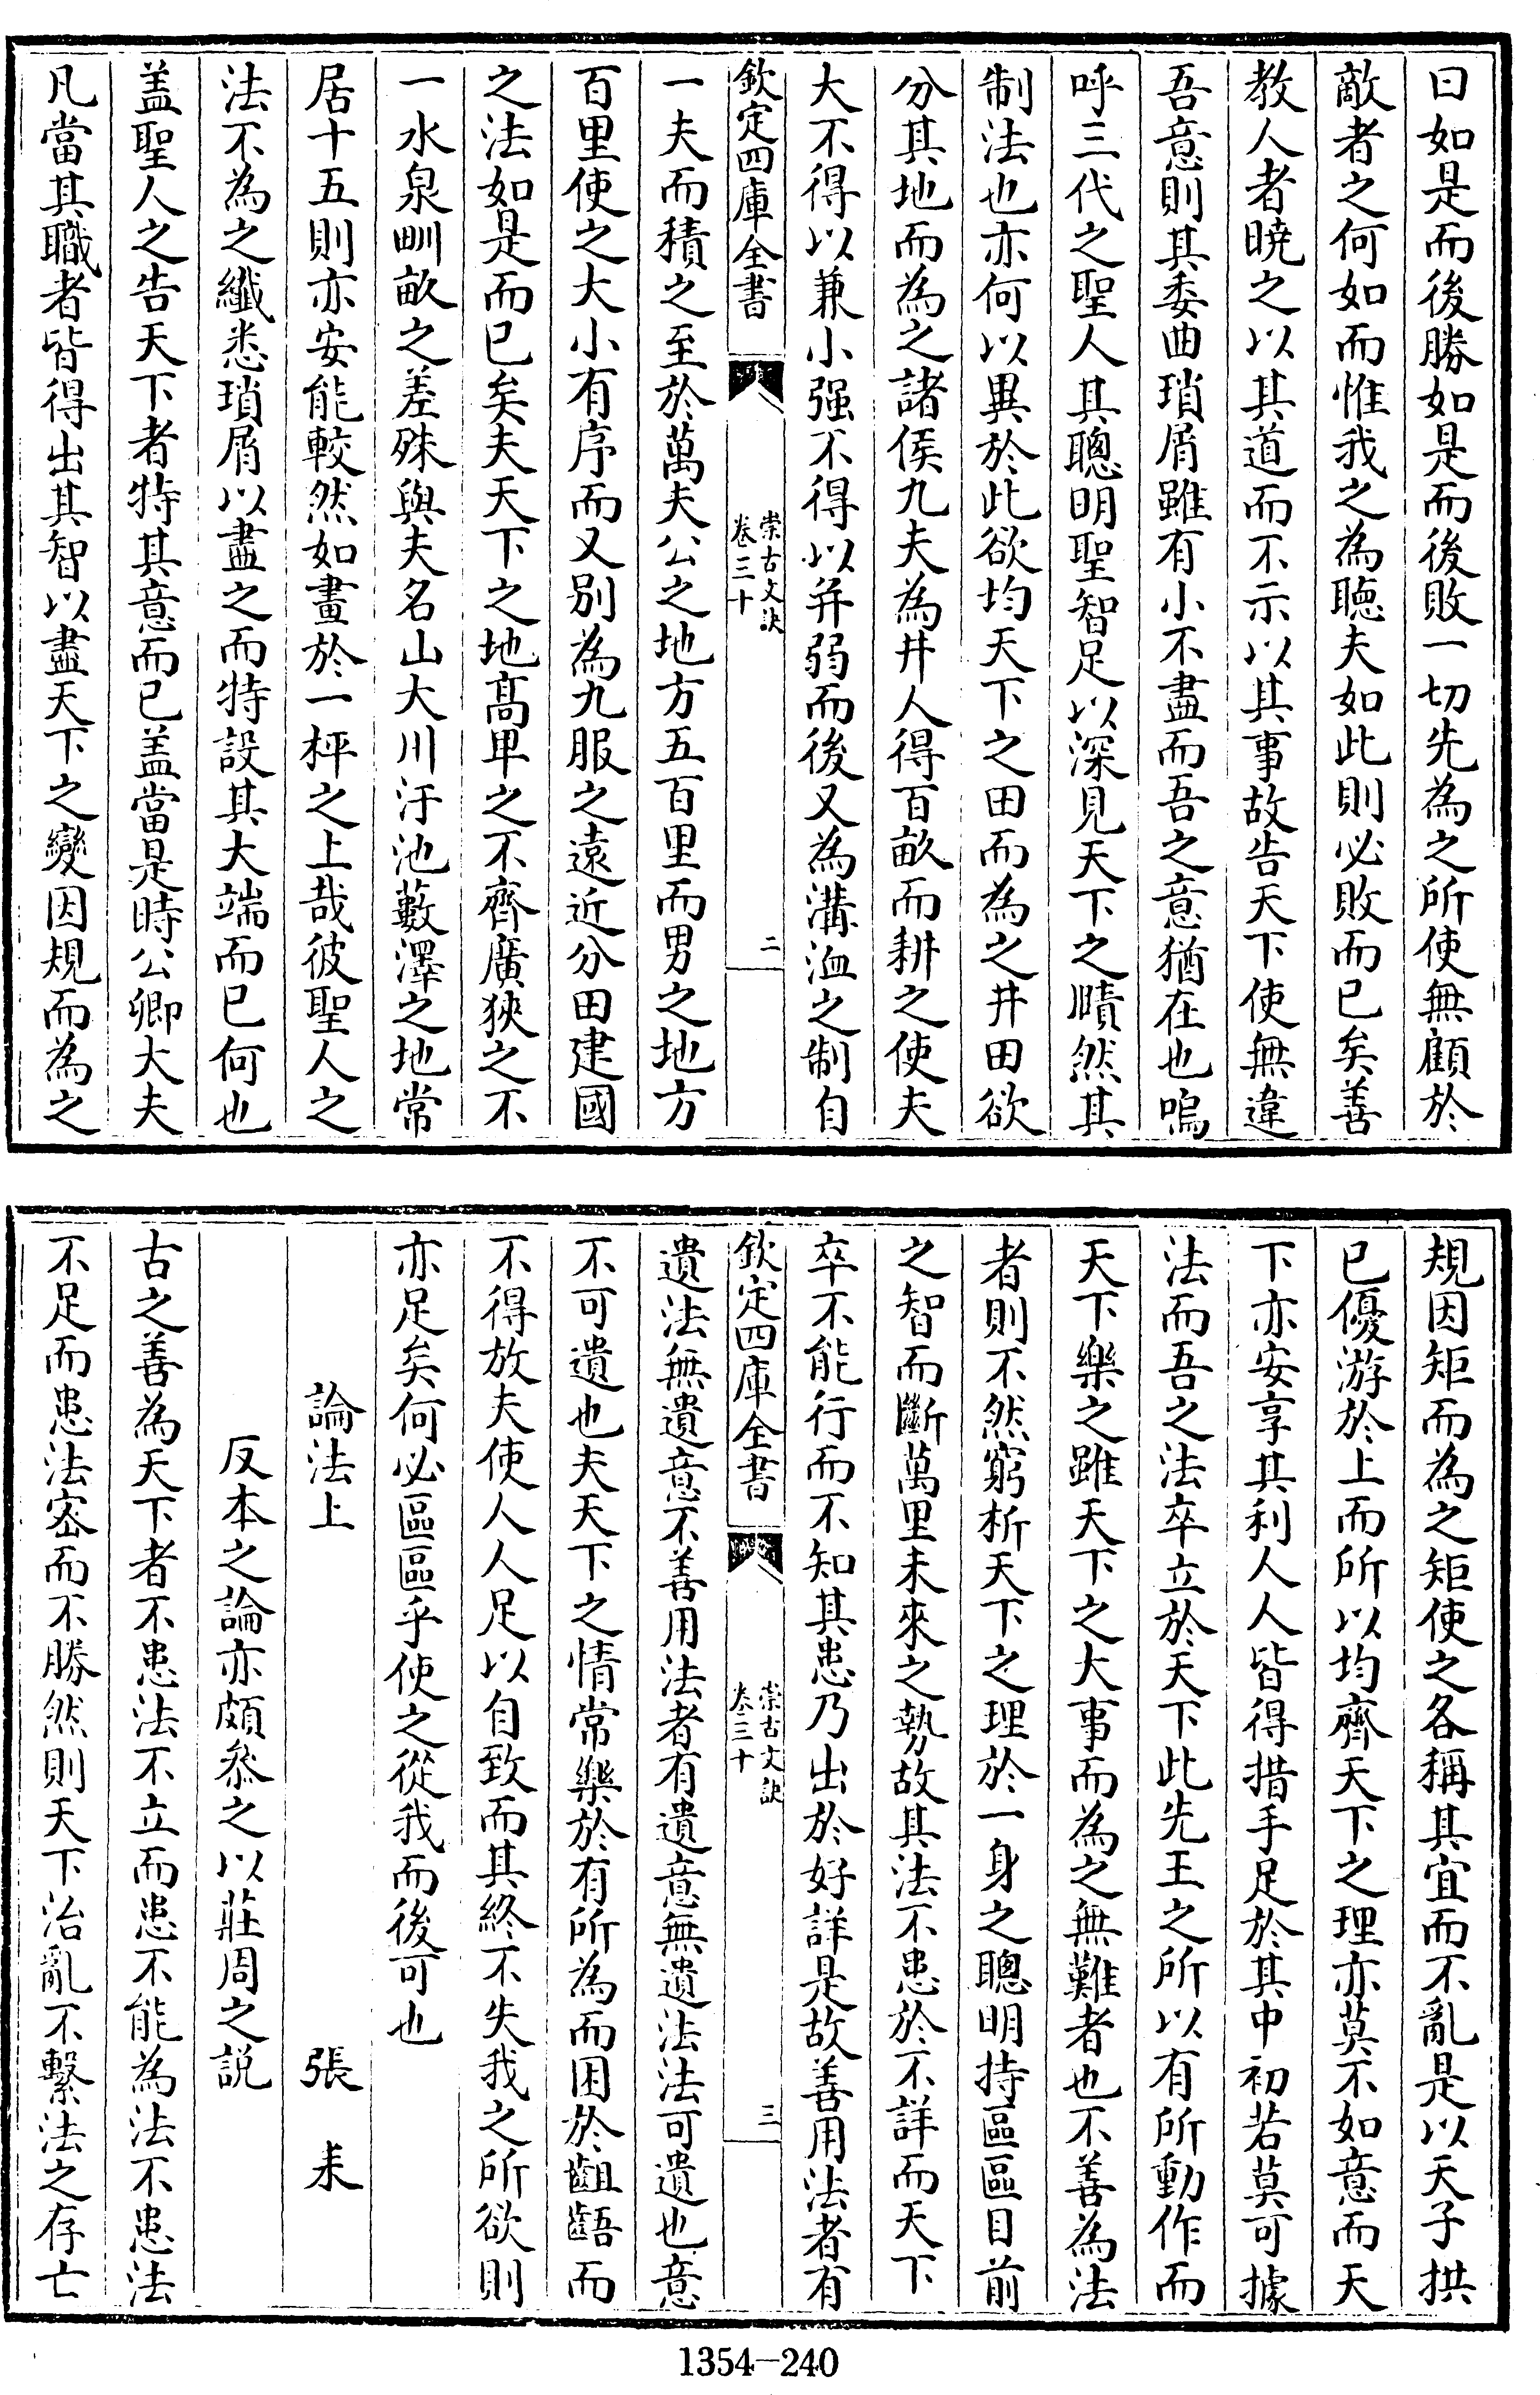 曰如是而後勝如是而後敗一切先為之所使無顧於
敵者之何如而惟我之為聽夫如此則必敗而已矣善
教人者曉之以其道而不示以其事故告天下使無違
吾意則其委曲瑣屑雖有小不盡而吾之意猶在也嗚
呼三代之聖人其聰明聖智足以深見天下之賾然其
制法也亦何以異於此欲均天下之田而為之井田欲
分其地而為之諸侯九夫為井人得百畝而耕之使夫
大不得以兼小强不得以并弱而後又為溝洫之制自
欽定四庫全書
崇古文訣
卷三十
二
一夫而積之至於萬夫公之地方五百里而男之地方
百里使之大小有序而又别為九服之遠近分田建國
之法如是而已矣夫天下之地高卑之不齊廣狹之不
一水泉甽畝之差殊與夫名山大川汙池藪澤之地常
居十五則亦安能較然如畫於一枰之上哉彼聖人之
法不為之纖悉瑣屑以盡之而特設其大端而已何也
盖聖人之告天下者特其意而已盖當是時公卿大夫
凡當其職者皆得出其智以盡天下之變因規而為之
規因矩而為之矩使之各稱其宜而不亂是以天子拱
已優游於上而所以均齊天下之理亦莫不如意而天
下亦安享其利人人皆得措手足於其中初若莫可據
法而吾之法卒立於天下此先王之所以有所動作而
天下樂之雖天下之大事而為之無難者也不善為法
者則不然窮析天下之理於一身之聰明持區區目前
之智而斷萬里未來之勢故其法不患於不詳而天下
卒不能行而不知其患乃出於好詳是故善用法者有
欽定四庫全書
崇古文訣
卷三十
三
遺法無遺意不善用法者有遺意無遺法法可遺也意
不可遺也夫天下之情常樂於有所為而困於齟齬而
不得放夫使人人足以自致而其終不失我之所欲則
亦足矣何必區區乎使之從我而後可也
論法上 張耒
反本之論亦頗叅之以莊周之説
古之善為天下者不患法不立而患不能為法不患法
不足而患法密而不勝然則天下治亂不繫法之存亡
1354-240